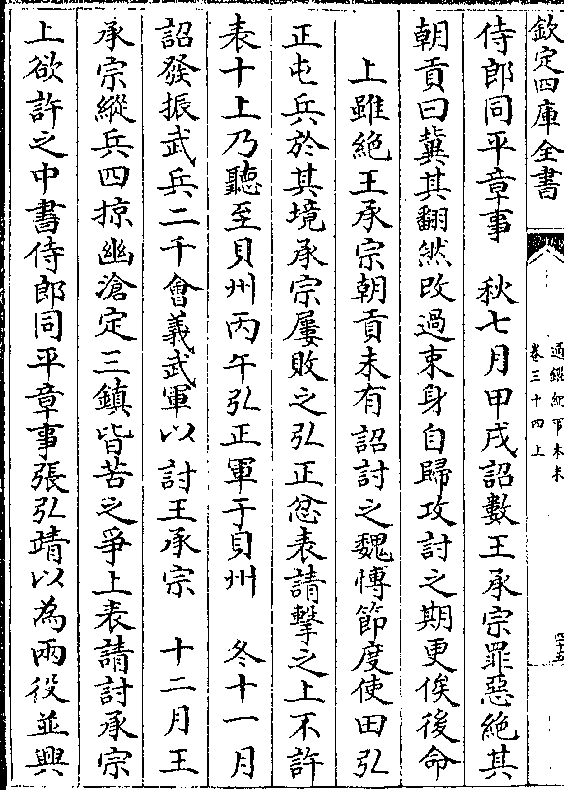 欽定四庫全書
通鑑紀事本末
卷三十四上
四十五
侍郎同平章事　秋七月甲戌詔數王承宗罪惡絶其
朝貢曰冀其翻然改過束身自歸攻討之期更俟後命
上雖絶王承宗朝貢未有詔討之魏博節度使田弘
正屯兵於其境承宗屢敗之弘正忿表請擊之上不許
表十上乃聽至貝州丙午弘正軍于貝州　冬十一月
詔發振武兵二千會義武軍以討王承宗　十二月王
承宗縱兵四掠幽滄定三鎮皆苦之爭上表請討承宗
上欲許之中書侍郎同平章事張弘靖以為兩役並興